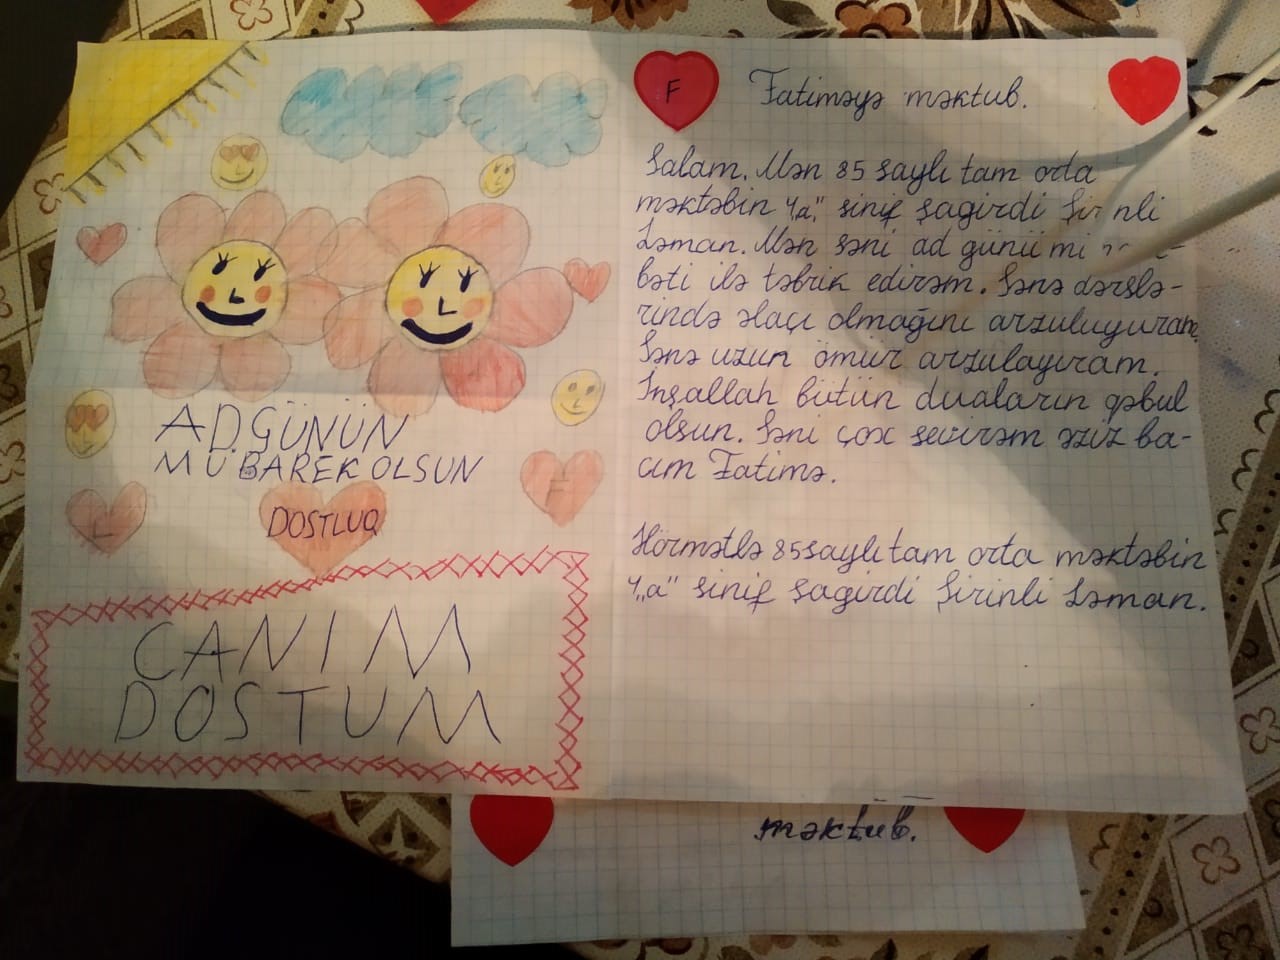 AD GÜNÜN
MÜBAREK OLSUN
L
DOSTLUQ
F
CANIM
DOSTUM
F
Fatiməyə məktub.
Salam. Mən 85 saylı tam orta
məktəbin 4„a" sinif şagirdi
Ləman. Mən səni ad günü
bəti ilə təbrik edirəm. Sənə dərslə-
rində əlaçı olmağını arzuluyuram.
Sənə uzun ömür arzulayıram.
İnşallah bütün duaların qəbul
olsun. Səni çox sevirəm əziz ba-
cım Fatimə.
Hörmətlə 85 saylı tam orta məktəbin
4„a" sinif şagirdi Şirinli Ləman.
məktub.